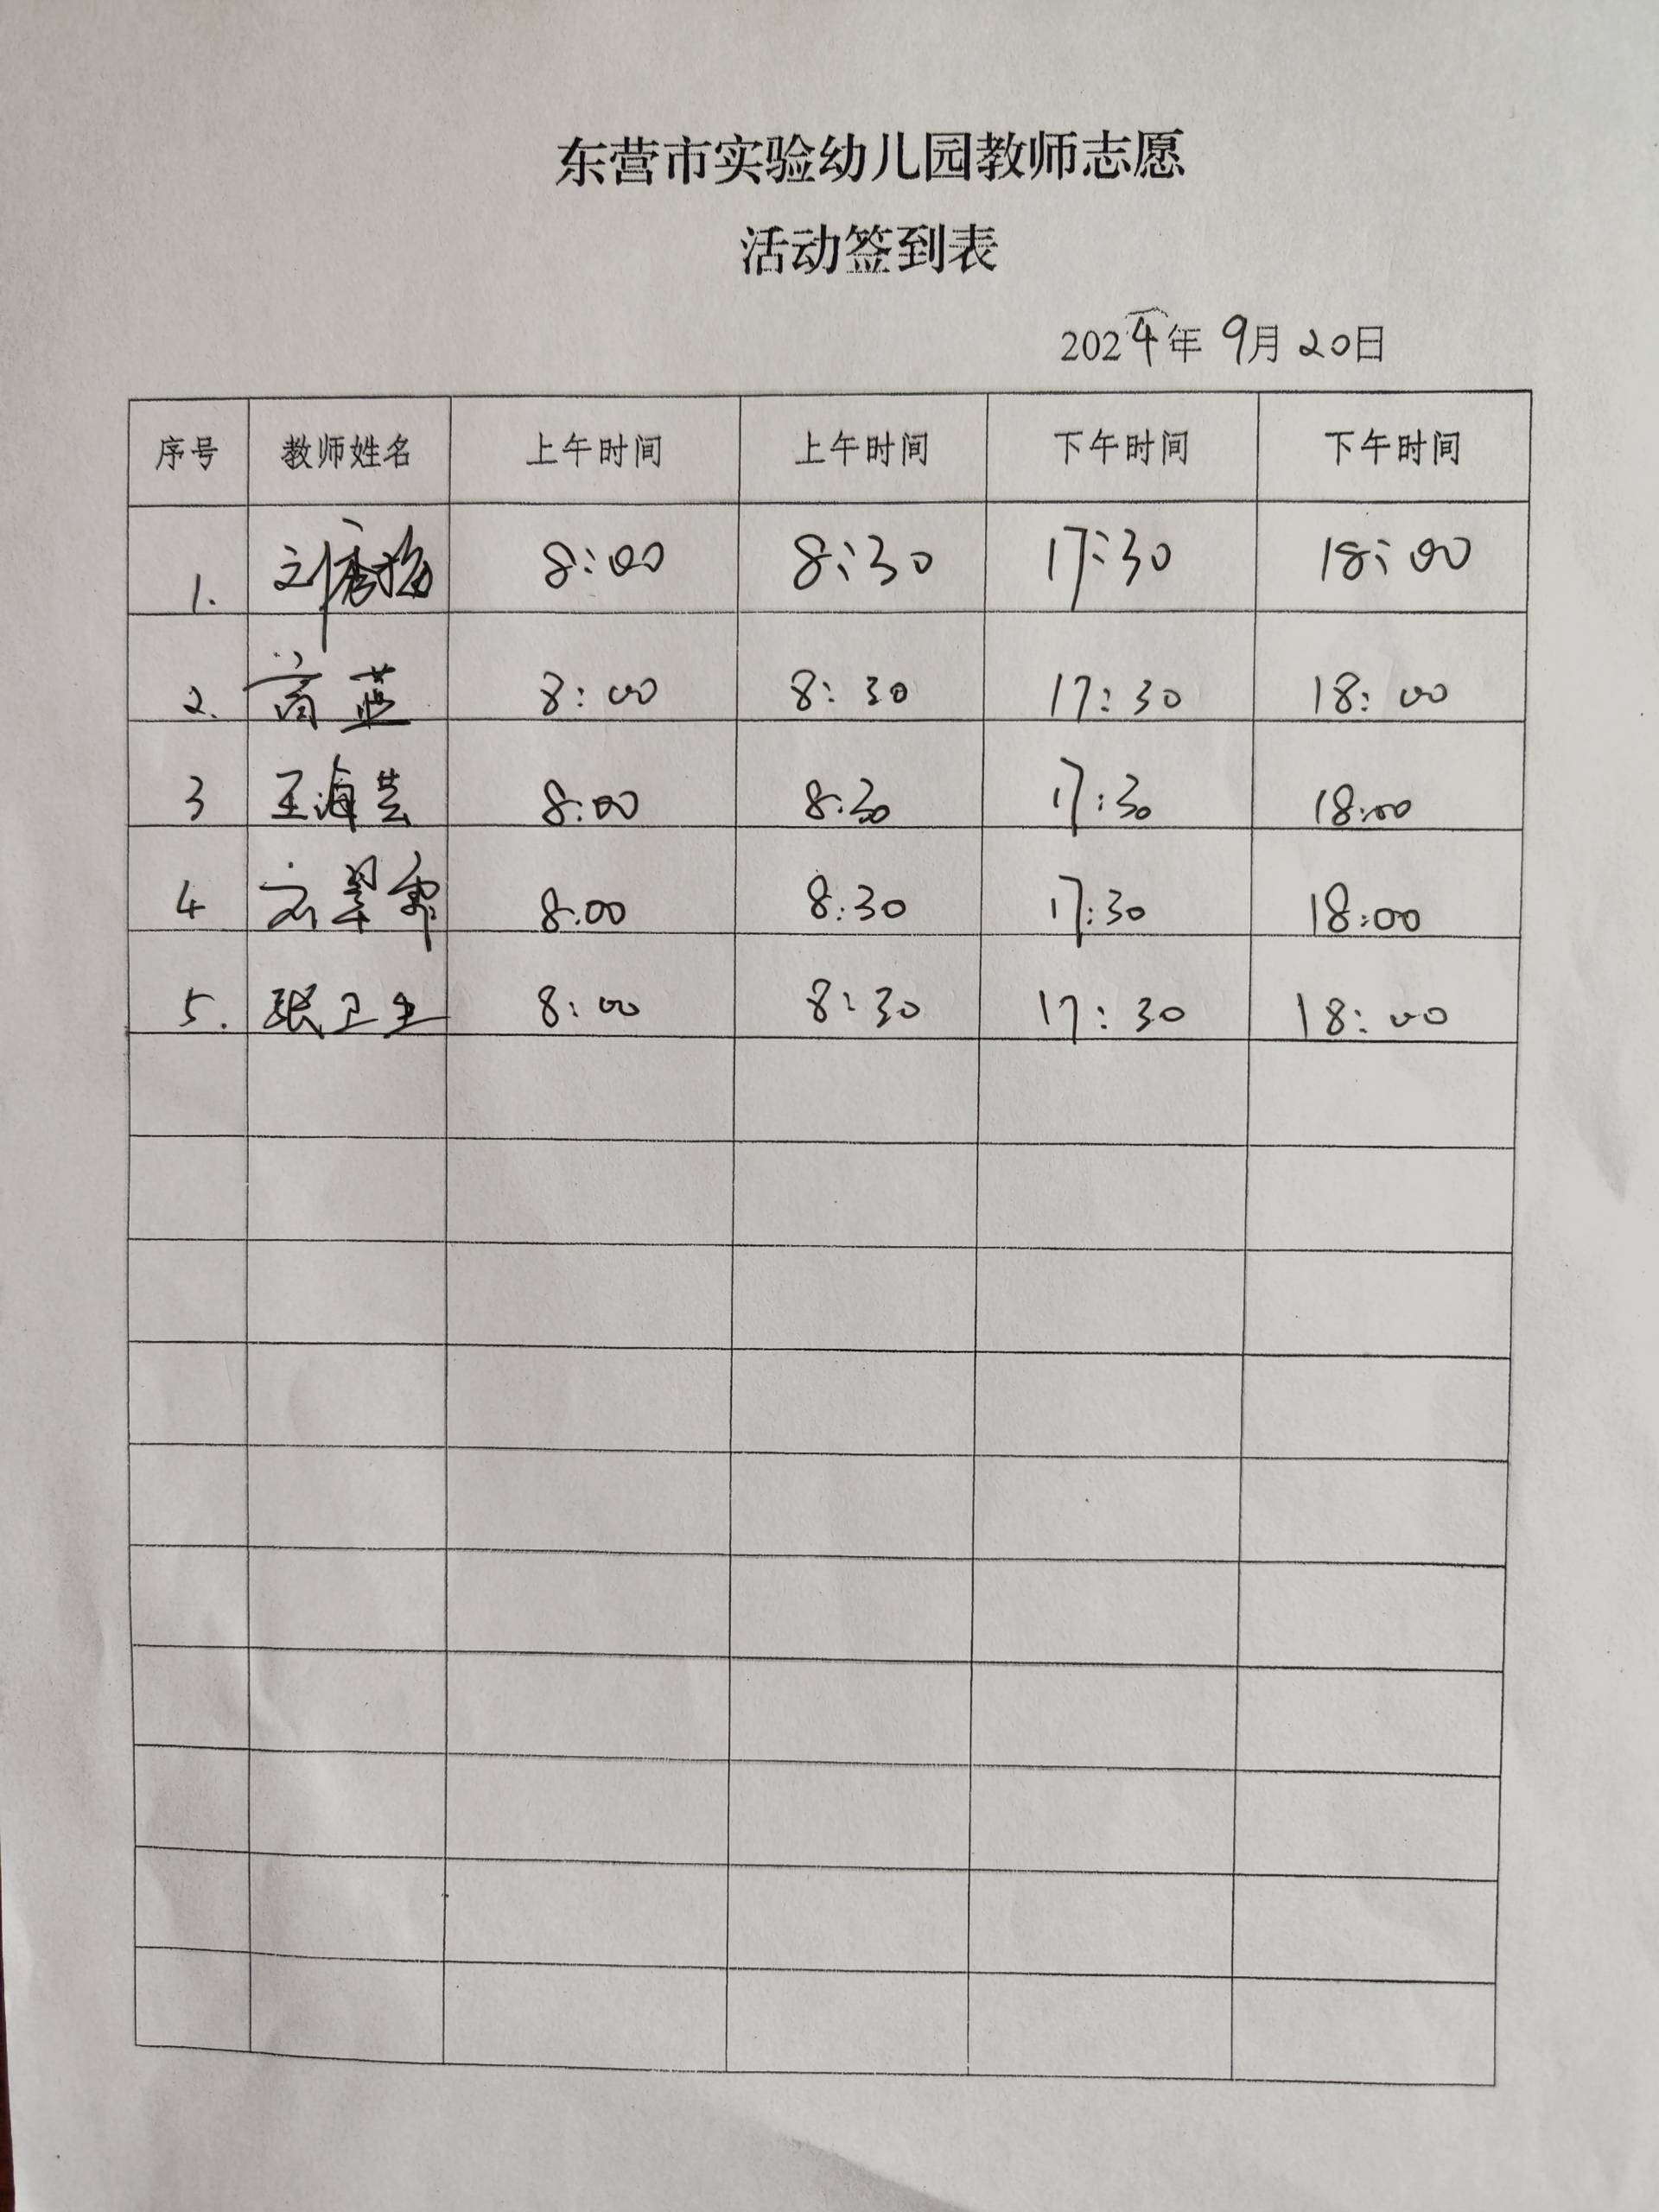 东营市实验幼儿园教师志愿
活动签到表
2024年 9月 20日
序号 教师姓名 上午时间 上午时间 下午时间 下午时间
1. 刘秀梅 8:00 8:30 17:30 18:00
2. 商蓝 8:00 8:30 17:30 18:00
3 王海芸 8:00 8:30 17:30 18:00
4 刘翠霞 8:00 8:30 17:30 18:00
5. 张卫生 8:00 8:30 17:30 18:00